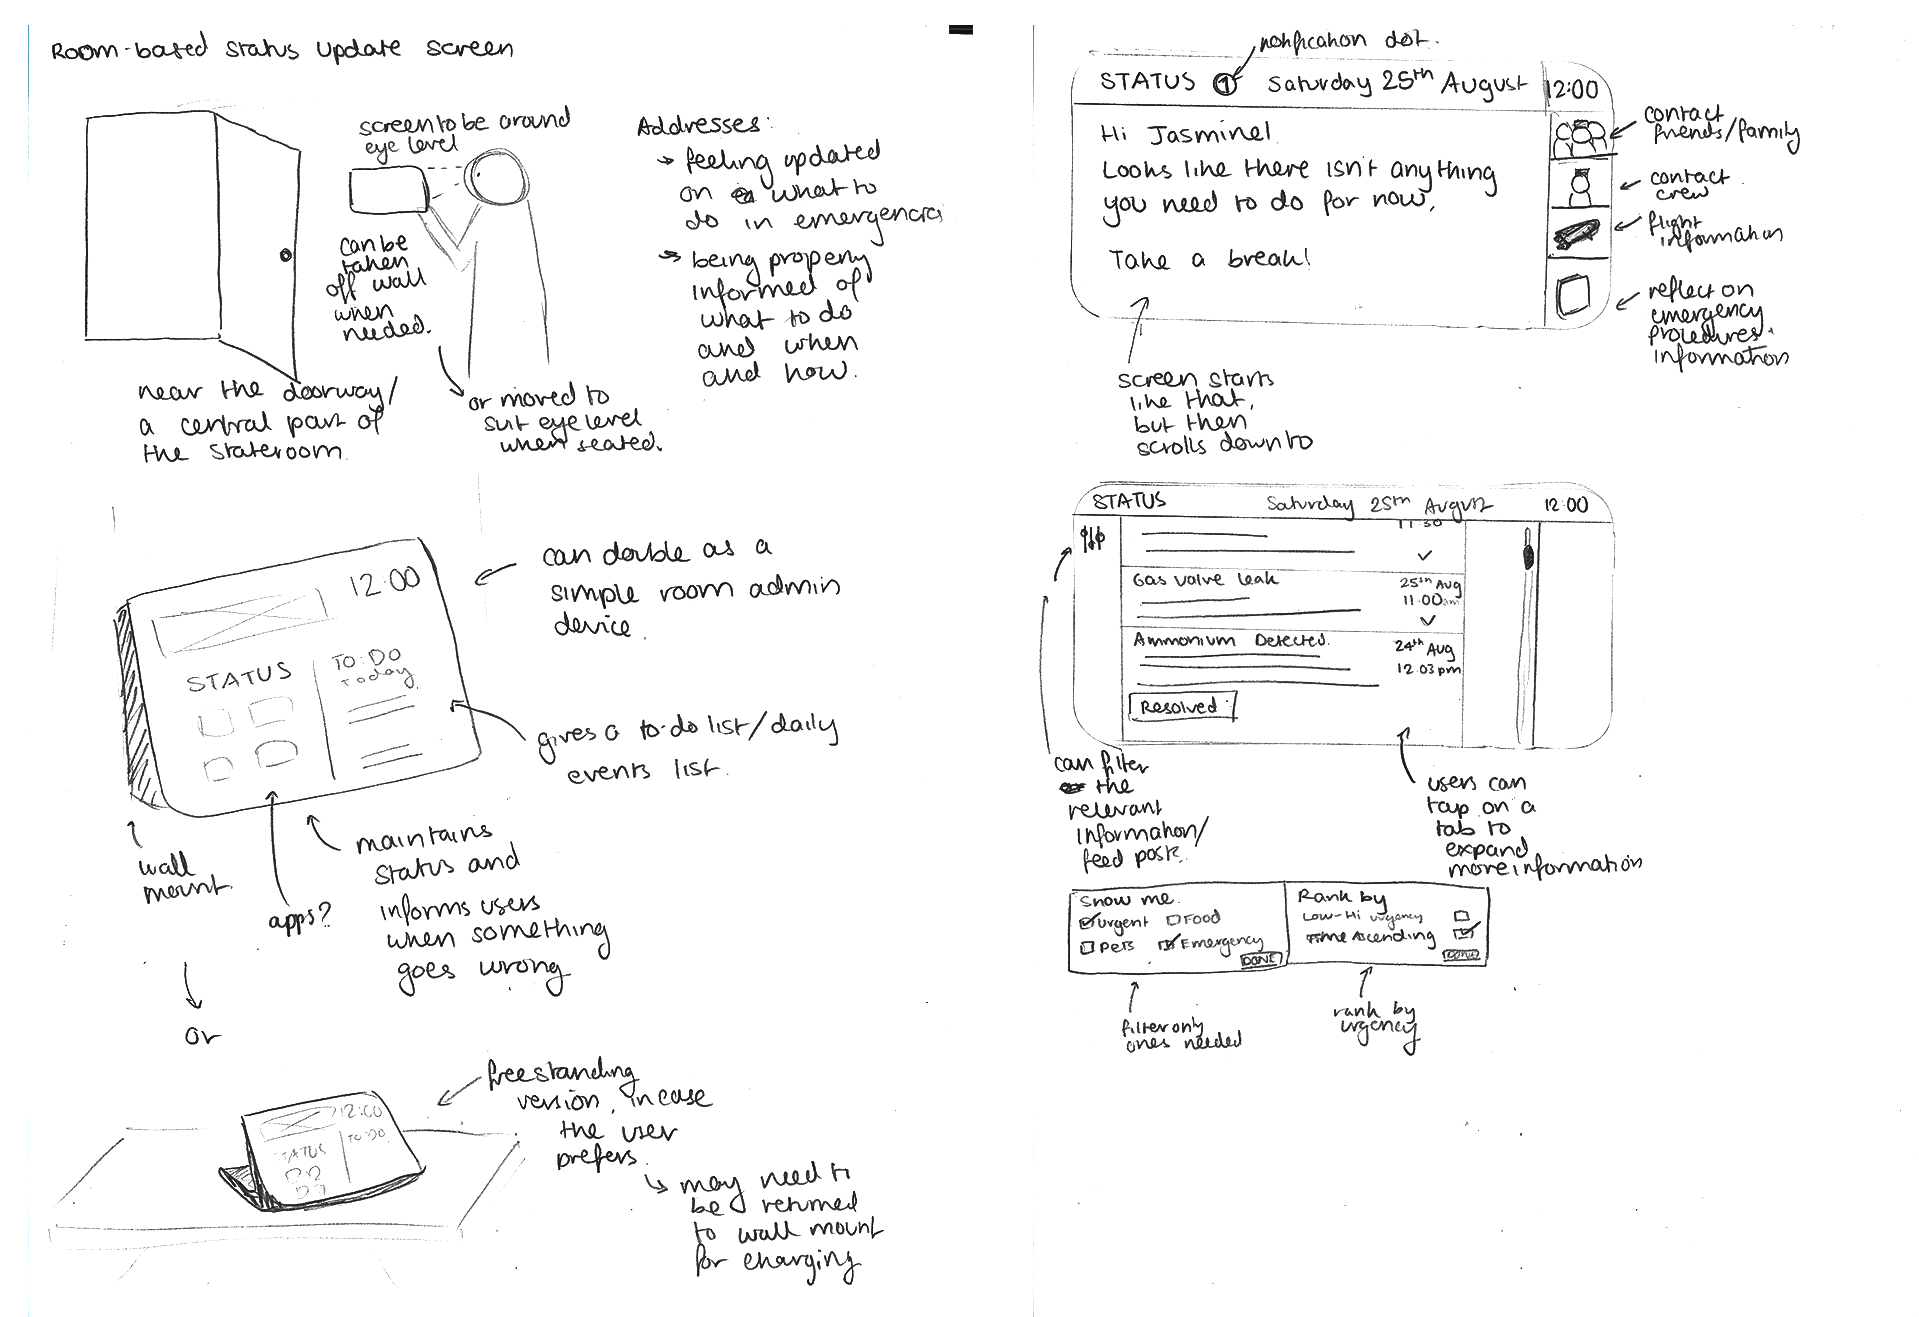 Room-based status update screen
screen to be around
eye level
can be
taken
off wall
when
needed.
near the doorway/
a central part of
the stateroom.
or moved to
suit eye level
when seated.
Addresses:
feeling updated
on what to
do in emergencies
being properly
informed of
what to do
and when
and how.
12:00
STATUS
TO-DO
Today
can double as a
simple room admin
device.
gives a to-do list/daily
events list.
wall
mount.
apps?
maintains
status and
informs users
when something
goes wrong
or
12:00
STATUS
TO-DO
freestanding
version, incase
the user
prefers.
may need to
be returned
to wall mount
for charging
notification dot.
STATUS 1 Saturday 25th August 12:00
Hi Jasmine!
Looks like there isn't anything
you need to do for now,
Take a break!
contact
friends/family
contact
crew
flight
information
reflect on
emergency
procedures.
information
screen starts
like that,
but then
scrolls down to
STATUS Saturday 25th August 12:00
11:30
Gas valve leak 25th Aug
11.00am
Ammonium Detected. 24th Aug
12.03pm
Resolved
can filter
the
relevant
information/
feed posts.
users can
tap on a
tab to
expand
more information
Show me.
Urgent Food
Pets Emergency
DONE
Rank by
Low-Hi urgency
Time Ascending
DONE
filter only
ones needed
rank by
urgency